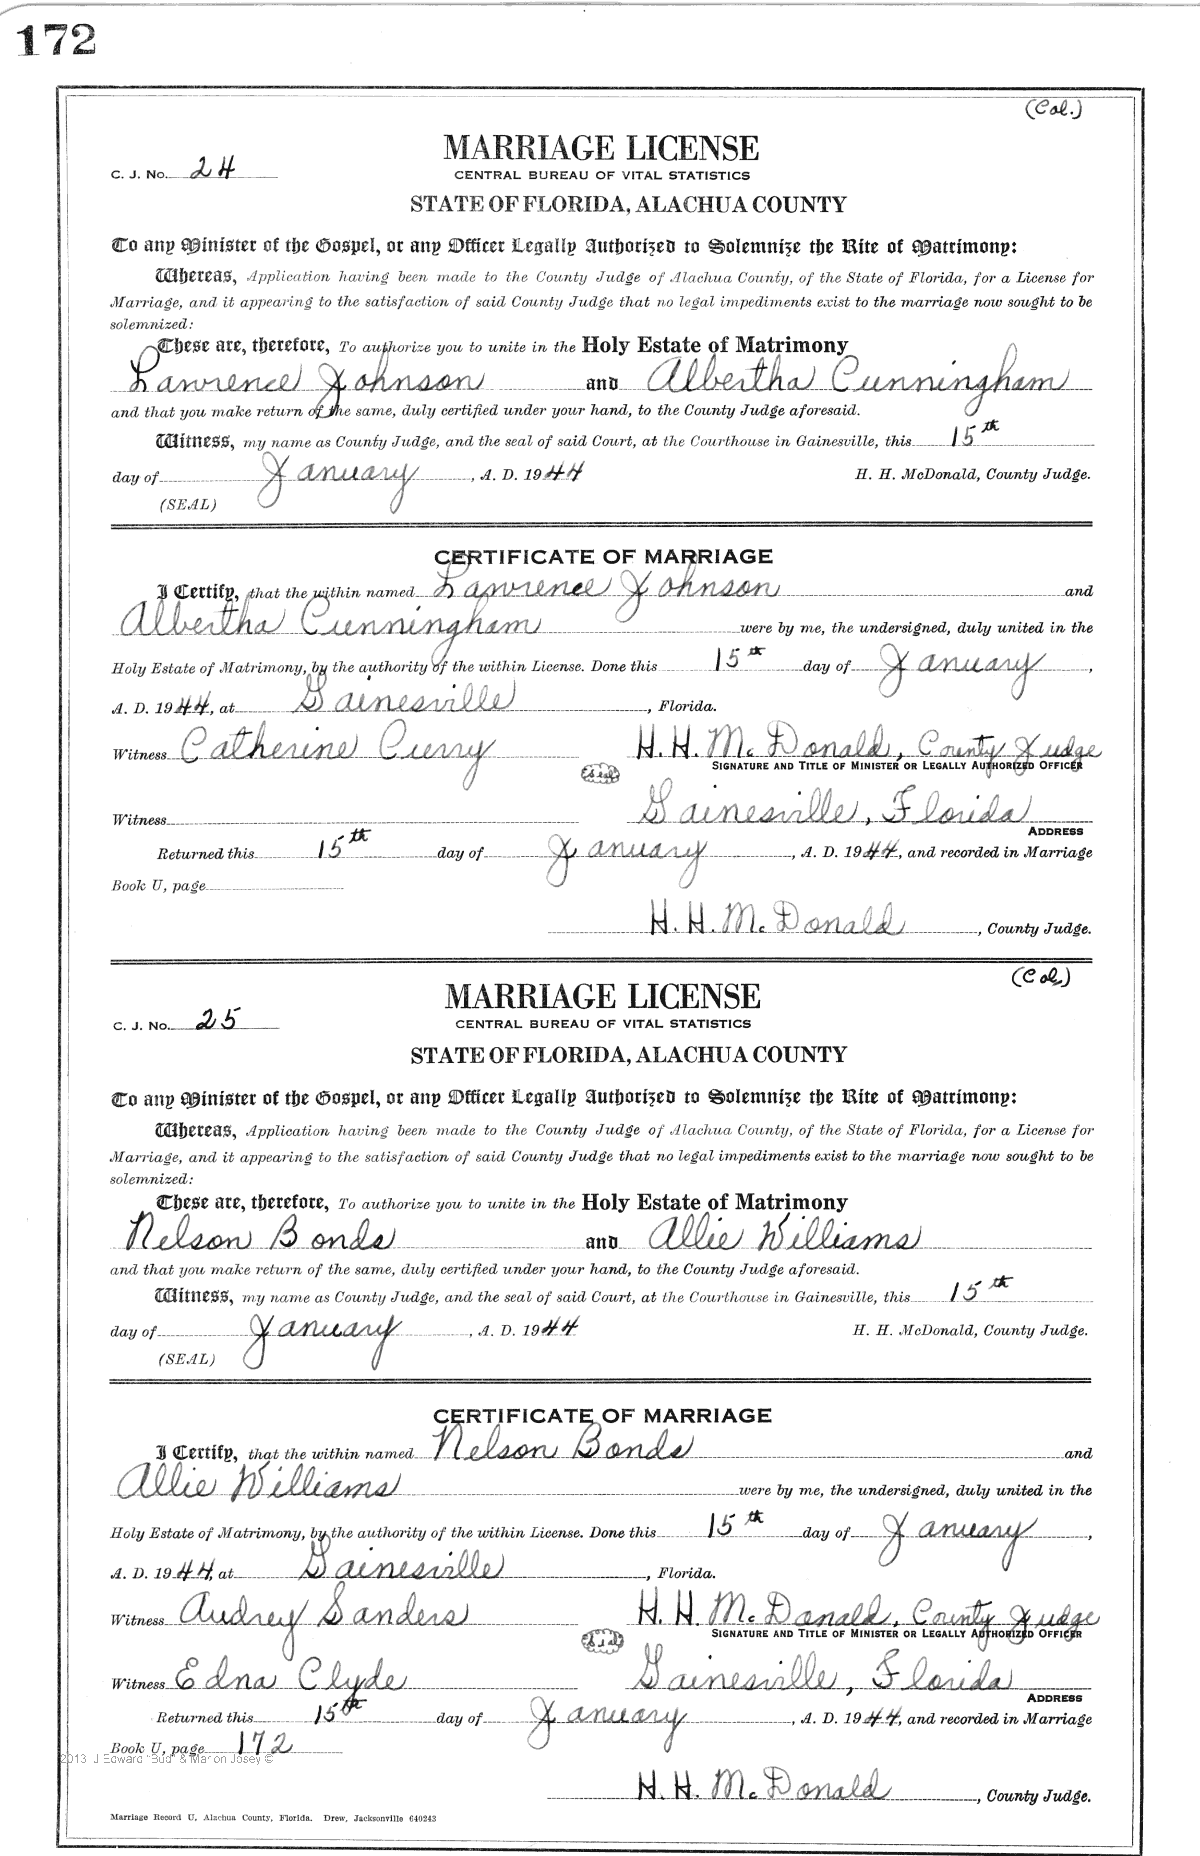 172
(Col.)
MARRIAGE LICENSE
C. J. No. 24
CENTRAL BUREAU OF VITAL STATISTICS
STATE OF FLORIDA, ALACHUA COUNTY
To any Minister of the Gospel, or any Officer Legally Authorized to Solemnize the Rite of Matrimony:
Whereas, Application having been made to the County Judge of Alachua County, of the State of Florida, for a License for
Marriage, and it appearing to the satisfaction of said County Judge that no legal impediments exist to the marriage now sought to be
solemnized:
These are, therefore, To authorize you to unite in the Holy Estate of Matrimony
Lawrence Johnson and Albertha Cunningham
and that you make return of the same, duly certified under your hand, to the County Judge aforesaid.
Witness, my name as County Judge, and the seal of said Court, at the Courthouse in Gainesville, this 15th
day of January, A. D. 1944 H. H. McDonald, County Judge.
(SEAL)
CERTIFICATE OF MARRIAGE
I Certify, that the within named Lawrence Johnson and
Albertha Cunningham were by me, the undersigned, duly united in the
Holy Estate of Matrimony, by the authority of the within License. Done this 15th day of January,
A. D. 1944, at Gainesville, Florida.
Witness Catherine Curry H. H. McDonald, County Judge
(Seal) SIGNATURE AND TITLE OF MINISTER OR LEGALLY AUTHORIZED OFFICER
Witness Gainesville, Florida
ADDRESS
Returned this 15th day of January, A. D. 1944, and recorded in Marriage
Book U, page
H. H. McDonald, County Judge.
(Col.)
MARRIAGE LICENSE
C. J. No. 25
CENTRAL BUREAU OF VITAL STATISTICS
STATE OF FLORIDA, ALACHUA COUNTY
To any Minister of the Gospel, or any Officer Legally Authorized to Solemnize the Rite of Matrimony:
Whereas, Application having been made to the County Judge of Alachua County, of the State of Florida, for a License for
Marriage, and it appearing to the satisfaction of said County Judge that no legal impediments exist to the marriage now sought to be
solemnized:
These are, therefore, To authorize you to unite in the Holy Estate of Matrimony
Nelson Bonds and Allie Williams
and that you make return of the same, duly certified under your hand, to the County Judge aforesaid.
Witness, my name as County Judge, and the seal of said Court, at the Courthouse in Gainesville, this 15th
day of January, A. D. 1944 H. H. McDonald, County Judge.
(SEAL)
CERTIFICATE OF MARRIAGE
I Certify, that the within named Nelson Bonds and
Allie Williams were by me, the undersigned, duly united in the
Holy Estate of Matrimony, by the authority of the within License. Done this 15th day of January,
A. D. 1944, at Gainesville, Florida.
Witness Audrey Sanders H. H. McDonald, County Judge
(Seal) SIGNATURE AND TITLE OF MINISTER OR LEGALLY AUTHORIZED OFFICER
Witness Edna Clyde Gainesville, Florida
ADDRESS
Returned this 15th day of January, A. D. 1944, and recorded in Marriage
Book U, page 172
2013 J Edward "Bud" & Marion Josey ©
H. H. McDonald, County Judge.
Marriage Record U, Alachua County, Florida. Drew, Jacksonville 640243